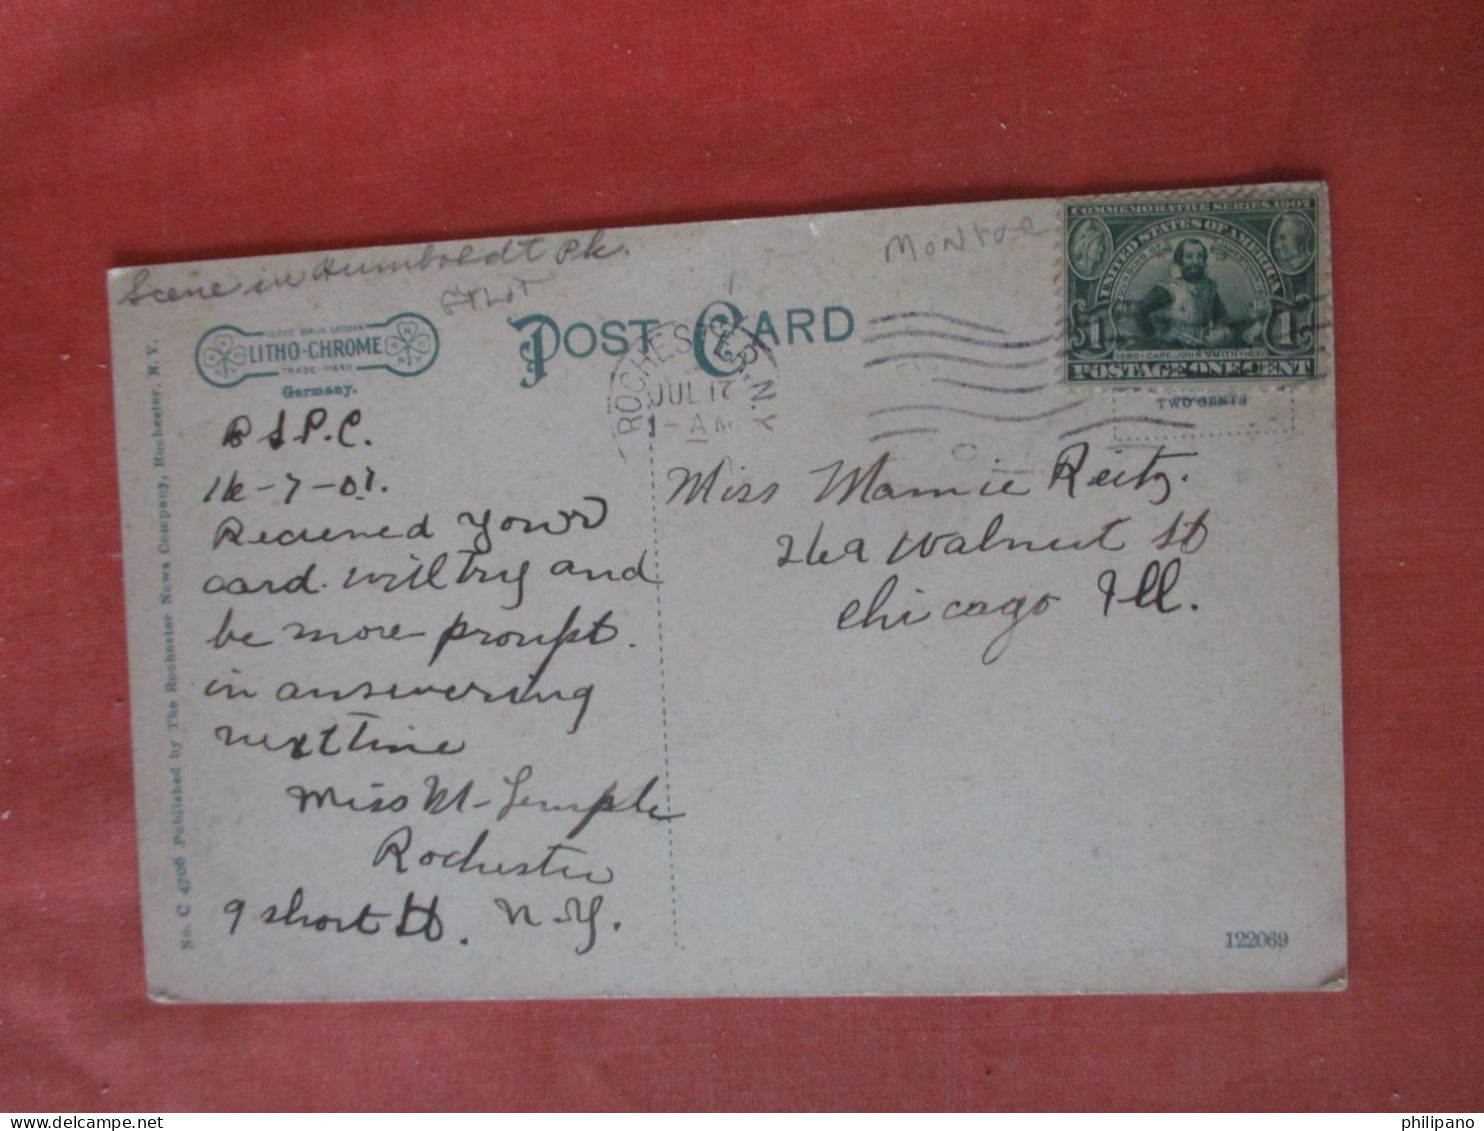 Scene in Humboldt Pk.
Monroe
COMMEMORATIVE SERIES 1907
UNITED STATES OF AMERICA
FOUNDING OF JAMESTOWN
1 1
1580 · CAPT. JOHN SMITH · 1631
POSTAGE ONE CENT
TWO CENTS
POST CARD
LITHO-CHROME
TRADE-MARK
Germany.
ROCHESTER, N.Y.
JUL 17
1-AM
P.C.
16-7-07.
Recieved your
card. will try and
be more proupt.
in answering
next time
Miss M. Temple
Rochester
9 short St. N.Y.
Miss Mamie Reitz.
269 Walnut St
Chicago Ill.
No. C 4706 Published by The Rochester News Company, Rochester, N. Y.
122069
philipano